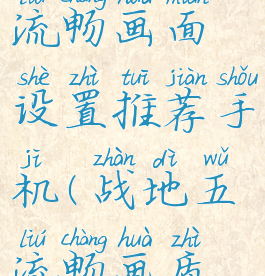 liú chàng huà miàn
流畅画面
shè zhì tuī jiàn shǒu
设置推荐手
jī zhàn dì wǔ
机(战地五
liú chàng huà zhì
流畅画质